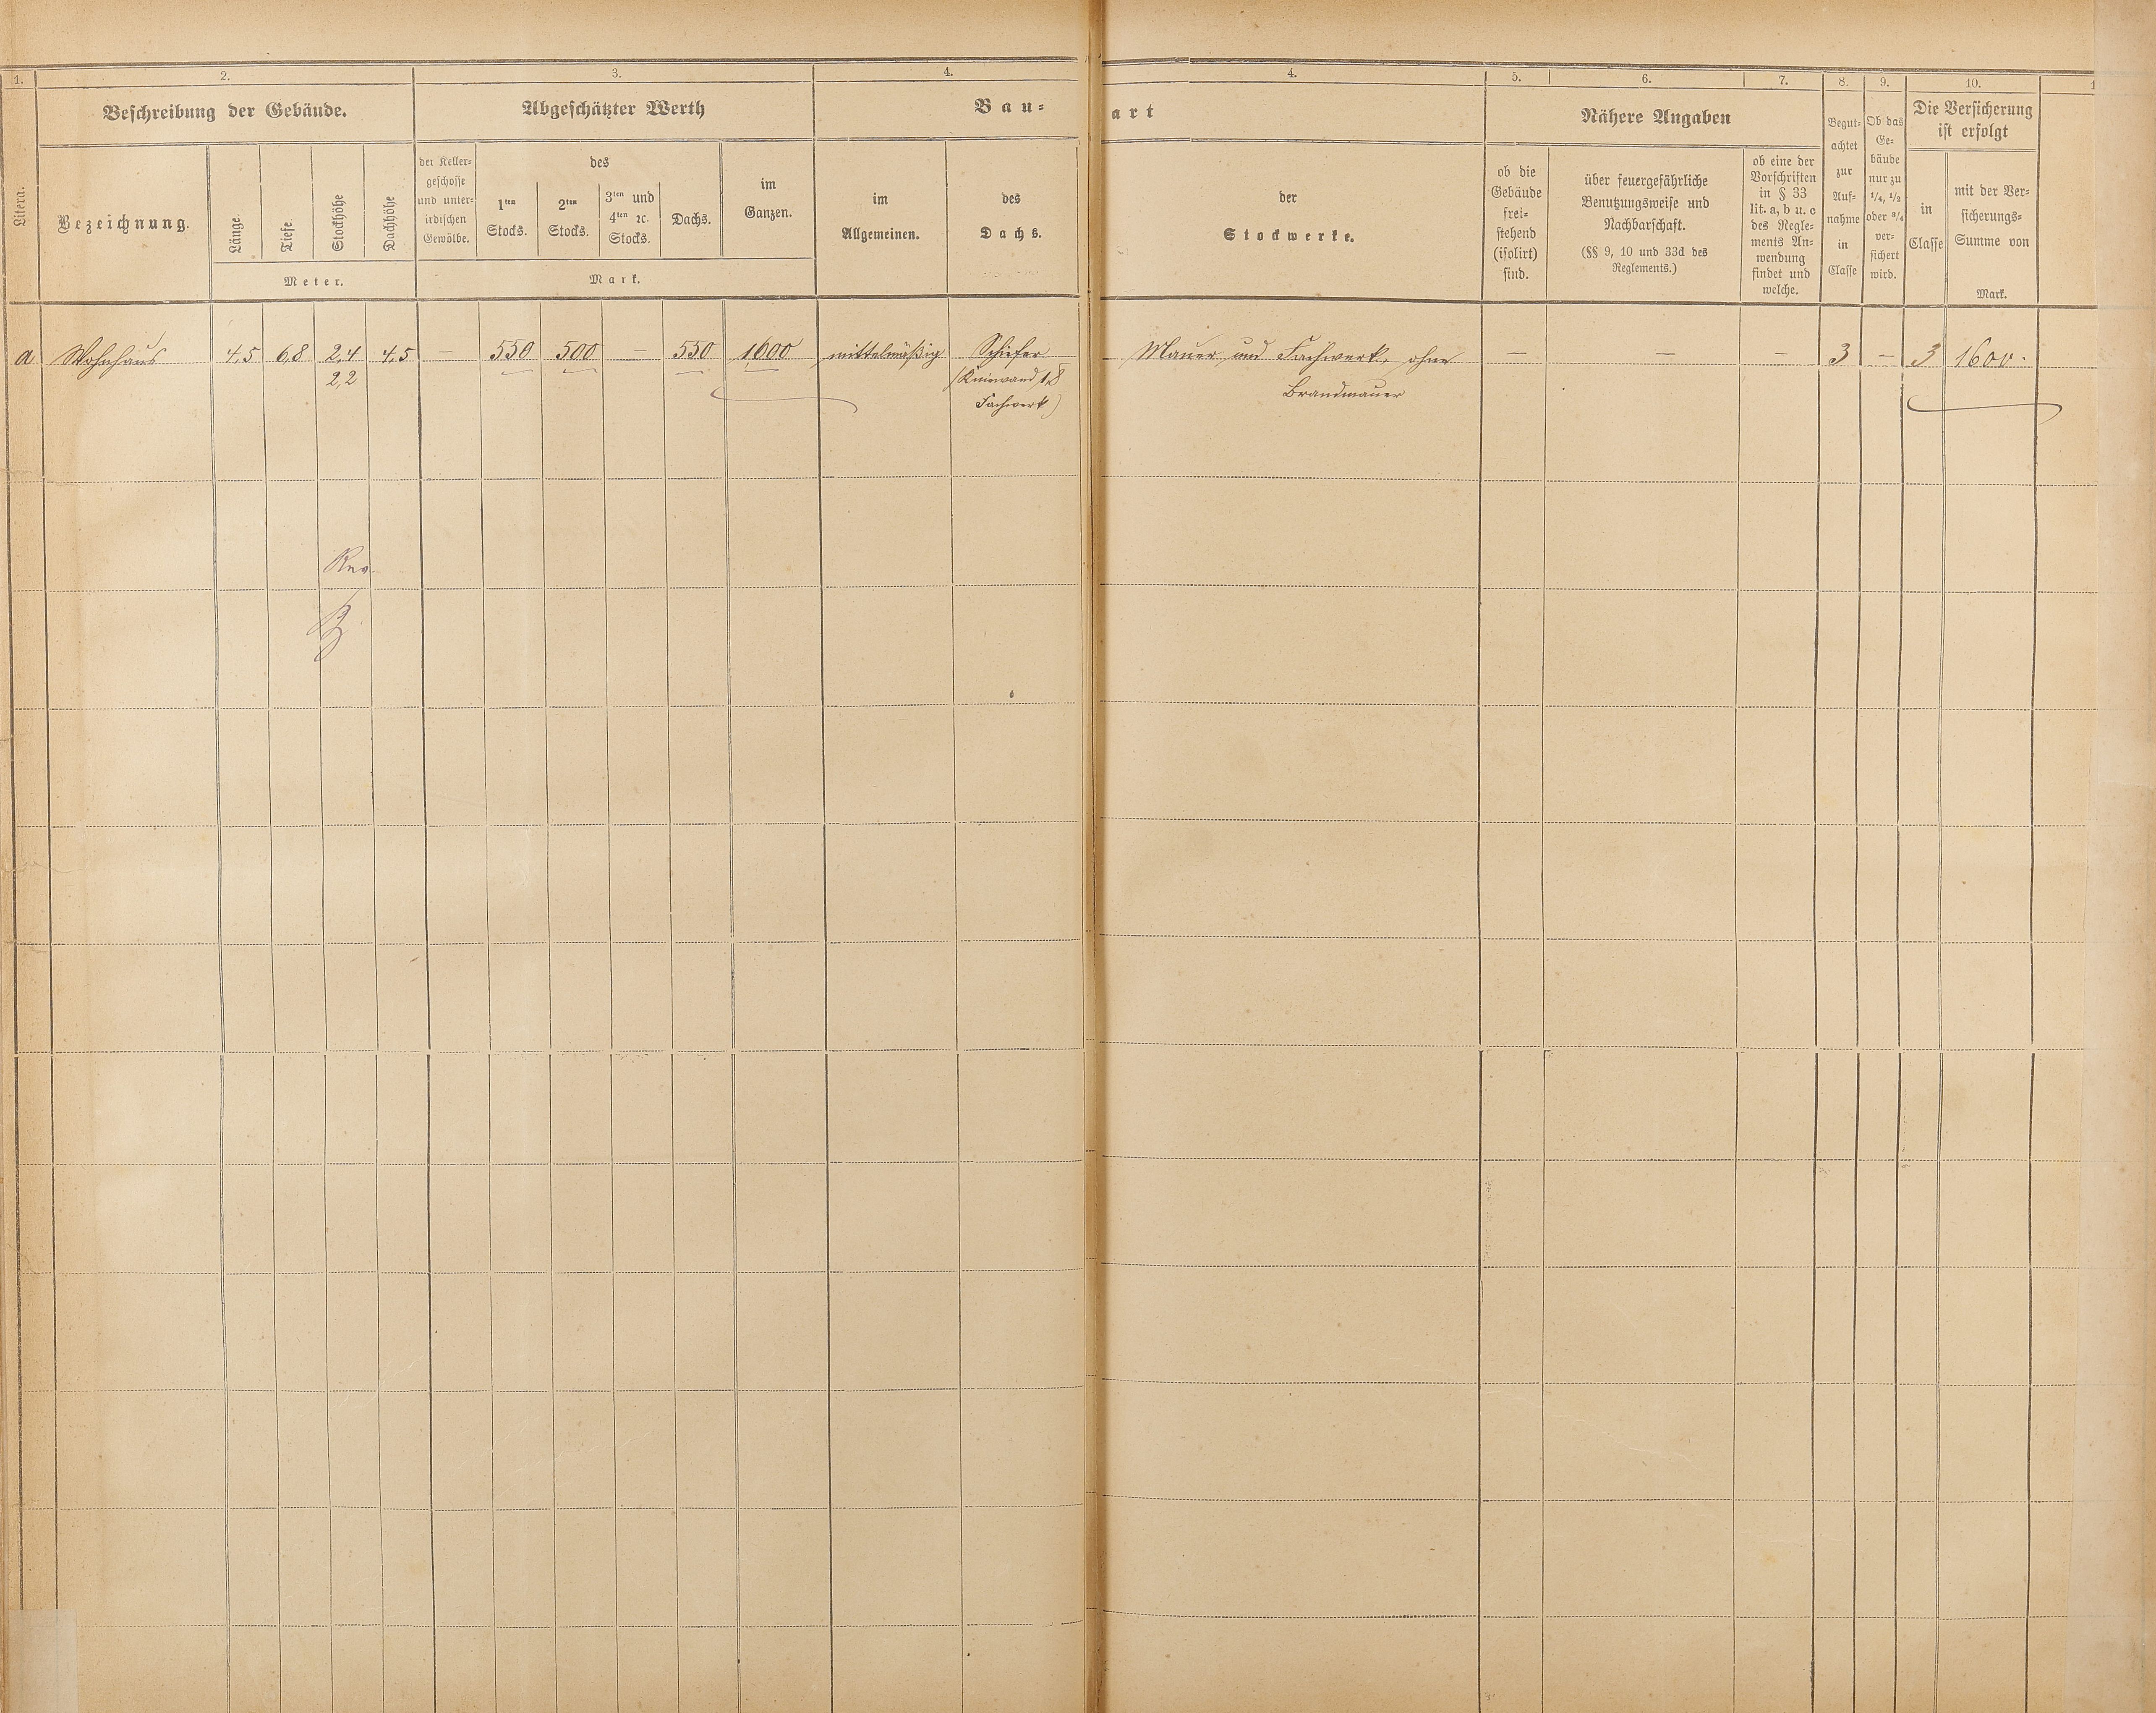 1.
2.
3.
4.
4.
5.
6.
7.
8.
9.
10.
1
Litera.
Beschreibung der Gebäude.
Bezeichnung.
Länge.
Tiefe.
Stockhöhe
Dachhöhe
Meter.
Abgeschätzter Werth
der Keller=
geschosse
und unter=
irdischen
Gewölbe.
des
1ten
Stocks.
2ten
Stocks.
3ten und
4ten ꝛc.
Stocks.
Dachs.
im
Ganzen.
Mark.
Bau=
art
im
Allgemeinen.
des
Dachs.
der
Stockwerke.
Nähere Angaben
ob die
Gebäude
frei=
stehend
(isolirt)
sind.
über feuergefährliche
Benutzungsweise und
Nachbarschaft.
(§§ 9, 10 und 33d des
Reglements.)
ob eine der
Vorschriften
in § 33
lit. a, b u. c
des Regle=
ments An=
wendung
findet und
welche.
Begut=
achtet
zur
Auf=
nahme
in
Classe
Ob das
Ge=
bäude
nur zu
1/4, 1/2
oder 3/4
ver=
sichert
wird.
Die Versicherung
ist erfolgt
in
Classe
mit der Ver=
sicherungs=
Summe von
Mark.
a Wohnhaus 4,5 6,8 2,4 4,5 — 550 500 — 550 1600 mittelmäßig Schiefer Mauer und Fachwerk, ohne — — — 3 — 3 1600.
2,2 (Kniewand 1,8 Brandmauer
Fachwerk)
Rev.